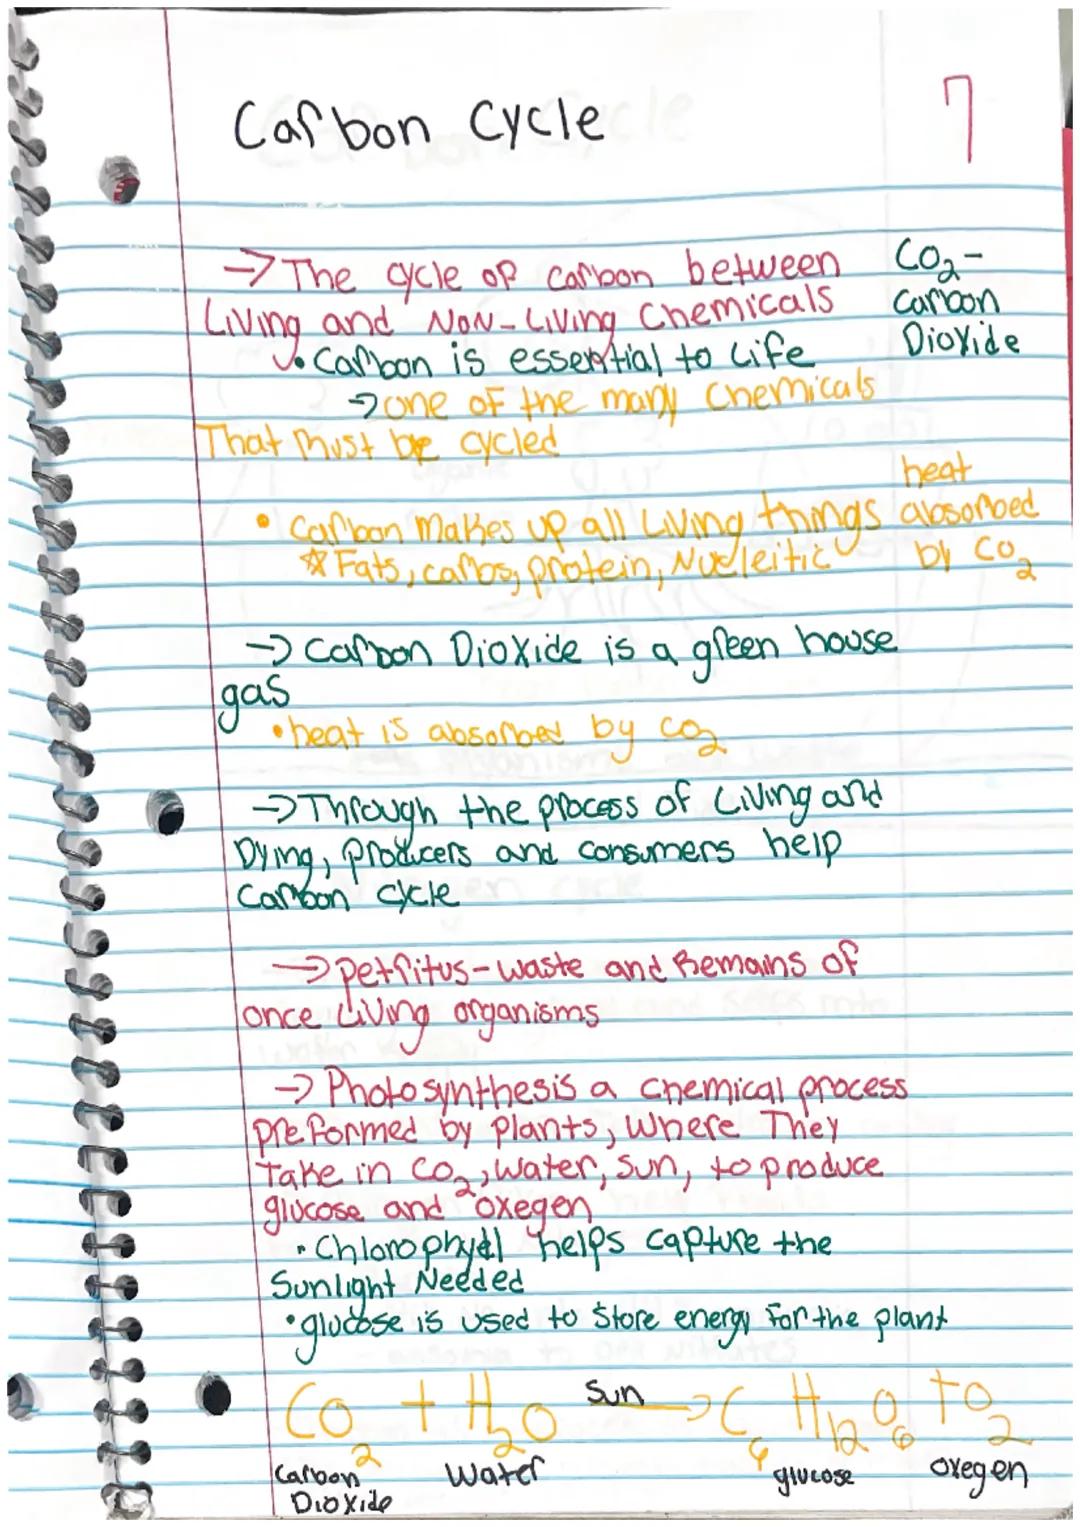 Carbon Cycle
7
→ The cycle of carbon between
Living and Non-Living Chemicals
• Carbon is essential to Life
→ one of the many Chemicals
That Must be cycled
CO2-
Carbon
Dioxide
• Carbon Makes up all Living things
☆ Fats, carbs, protein, Nucleitic
heat
absorbed
by CO2
→ Carbon Dioxide is a green house
gas
• heat is absorbed by CO2
→ Through the process of Living and
Dying, producers and consumers help
Carbon cycle
→ Detritus - waste and Remains of
once Living organisms
→ Photosynthesis a chemical process
preformed by plants, Where They
Take in CO2, water, sun, to produce
glucose and oxegen
• Chlorophyll helps capture the
Sunlight Needed
• glucose is used to Store energy for the plant
CO2 + H2O Sun → C6 H12 O6 + O2
Carbon Dioxide Water glucose oxegen